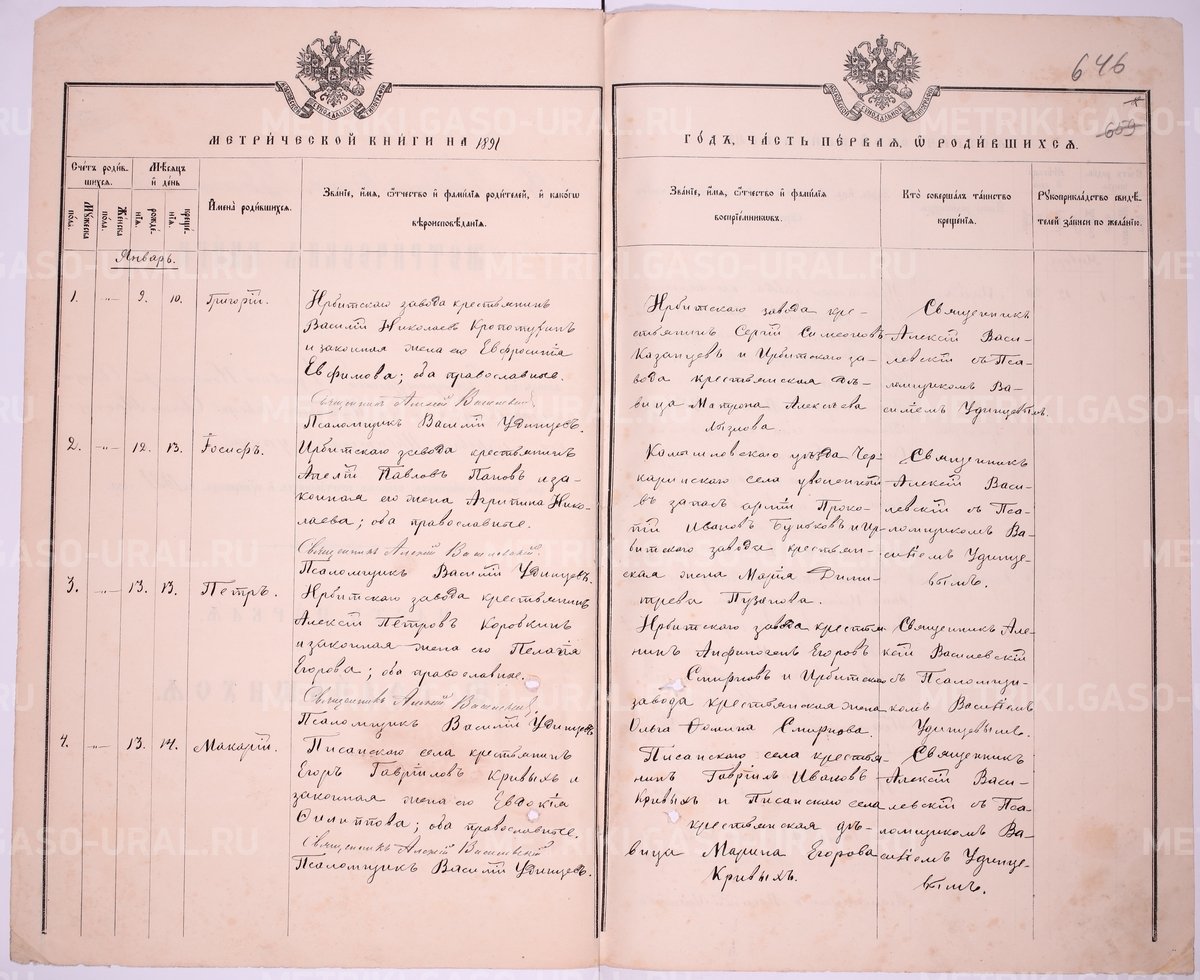 646
609
МОСКОВСКОЙ СѴНОДАЛЬНОЙ ТИПОГРАФІИ
МОСКОВСКОЙ СѴНОДАЛЬНОЙ ТИПОГРАФІИ
МЕТРИ́ЧЕСКОЙ КНИ́ГИ НА 1891
ГО́ДЪ, ЧА́СТЬ ПЕ́РВАЯ, Ѡ РОДИ́ВШИХСЯ.
Сче́тъ роди́в-
шихся.
Мꙋжеска
по́ла.
Же́нска
по́ла.
Мѣ́сяцъ
и҆ де́нь
рожде́-
нїя.
креще́-
нїя.
И҆мена̀ роди́вшихся.
Зва́нїе, и҆́мя, ѻ҆́тчество и҆ фамилїя роди́телей, и҆ како́гѡ
вѣроисповѣ́данїя.
Зва́нїе, и҆́мя, ѻ҆́тчество и҆ фамилїя
воспрїе́мниковъ.
Кто̀ соверша́лъ та́инство
креще́нїя.
Рꙋкоприкла́дство свидѣ́-
телей за́писи по жела́нїю.
Январь.
1. „ 9. 10. Григорій.
Ирбитскаго завода крестьянинъ
Василій Николаевъ Кропотухинъ
и законная жена его Евфросинія
Евфимова; оба православные.
Священникъ Алексій Василевскій
Псаломщикъ Василій Удинцевъ.
Ирбитскаго завода кре-
стьянинъ Сергій Симеоновъ
Казанцевъ и Ирбитскаго за-
вода крестьянская дѣ-
вица Матрона Алексѣева
Лызлова.
Священникъ
Алексій Васи-
левскій съ Пса-
ломщикомъ Ва-
силіемъ Удинцевымъ.
2. „ 12. 13. Іосифъ.
Ирбитскаго завода крестьянинъ
Павловъ Поповъ и за-
конная его жена Агрипина Нико-
лаева; оба православные.
Священникъ Алексій Василевскій
Псаломщикъ Василій Удинцевъ.
Камышловскаго уѣзда Чер-
каринскаго села уволенный
въ запасъ арміи Проко-
пій Ивановъ Буньковъ и Ир-
битскаго завода крестьян-
ская жена Марія Дими-
трева Пузанова.
Священникъ
Алексій Васи-
левскій съ Пса-
ломщикомъ Ва-
силіемъ Удинце-
вымъ.
3. „ 13. 13. Петръ.
Ирбитскаго завода крестьянинъ
Алексій Петровъ Коровкинъ
и законная жена его Пелагія
Егорова; оба православные.
Священникъ Алексій Василевскій
Псаломщикъ Василій Удинцевъ
Ирбитскаго завода крестья-
нинъ Анфиногенъ Егоровъ
Смирновъ и Ирбитскаго
завода крестьянская жена
Ольга Ѳомина Смирнова.
Священникъ Але-
ксій Василевскій
съ Псаломщи-
комъ Василіемъ
Удинцевымъ.
4. „ 13. 14. Макарій.
Писанскаго села крестьянинъ
Егоръ Гавріиловъ Кривыхъ и
законная жена его Евдокія
Филиппова; оба православные.
Священникъ Алексій Василевскій
Псаломщикъ Василій Удинцевъ.
Писанскаго села крестья-
нинъ Гавріилъ Ивановъ
Кривыхъ и Писанскаго села
крестьянская дѣ-
вица Марина Егорова
Кривыхъ.
Священникъ
Алексій Васи-
левскій съ Пса-
ломщикомъ Ва-
силіемъ Удинце-
вымъ.
METRIKI.GASO-URAL.RU